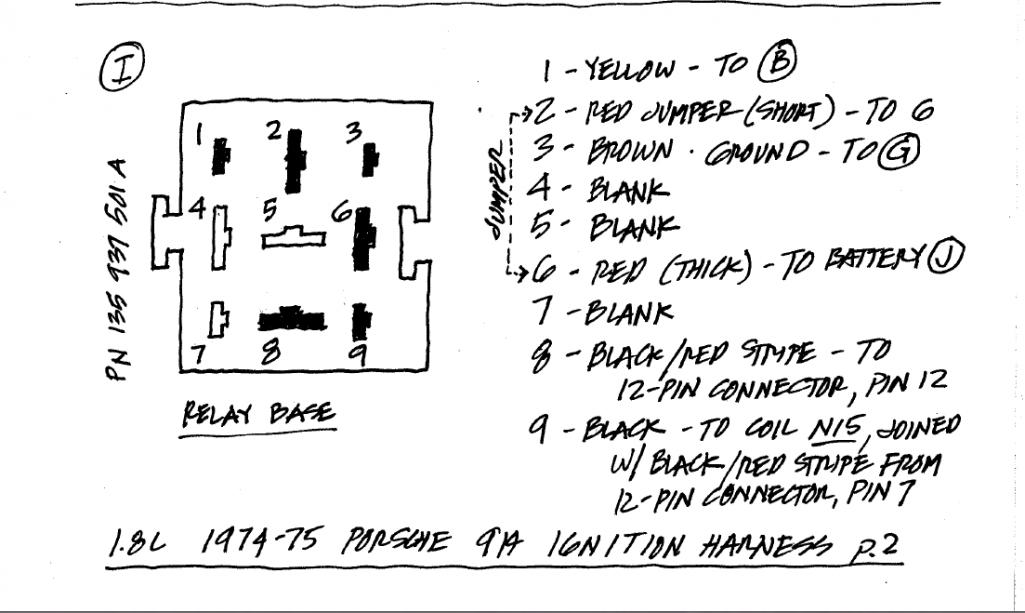 I
PN 135 937 501 A
1 2 3
4 5 6
7 8 9
RELAY BASE
JUMPER
1 - YELLOW - TO B
2 - RED JUMPER (SHORT) - TO 6
3 - BROWN · GROUND - TO G
4 - BLANK
5 - BLANK
6 - RED (THICK) - TO BATTERY J
7 - BLANK
8 - BLACK/RED STRIPE - TO
12-PIN CONNECTOR, PIN 12
9 - BLACK - TO COIL N15, JOINED
W/ BLACK/RED STRIPE FROM
12-PIN CONNECTOR, PIN 7
1.8L 1974-75 PORSCHE 914 IGNITION HARNESS p.2